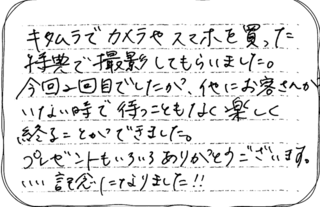 キタムラでカメラやスマホを買った
特典で撮影してもらいました。
今回2回目でしたが、他にお客さんが
いない時で待つこともなく楽しく
終ることができました。
プレゼントもいろいろありがとうございます。
いい記念になりました!!